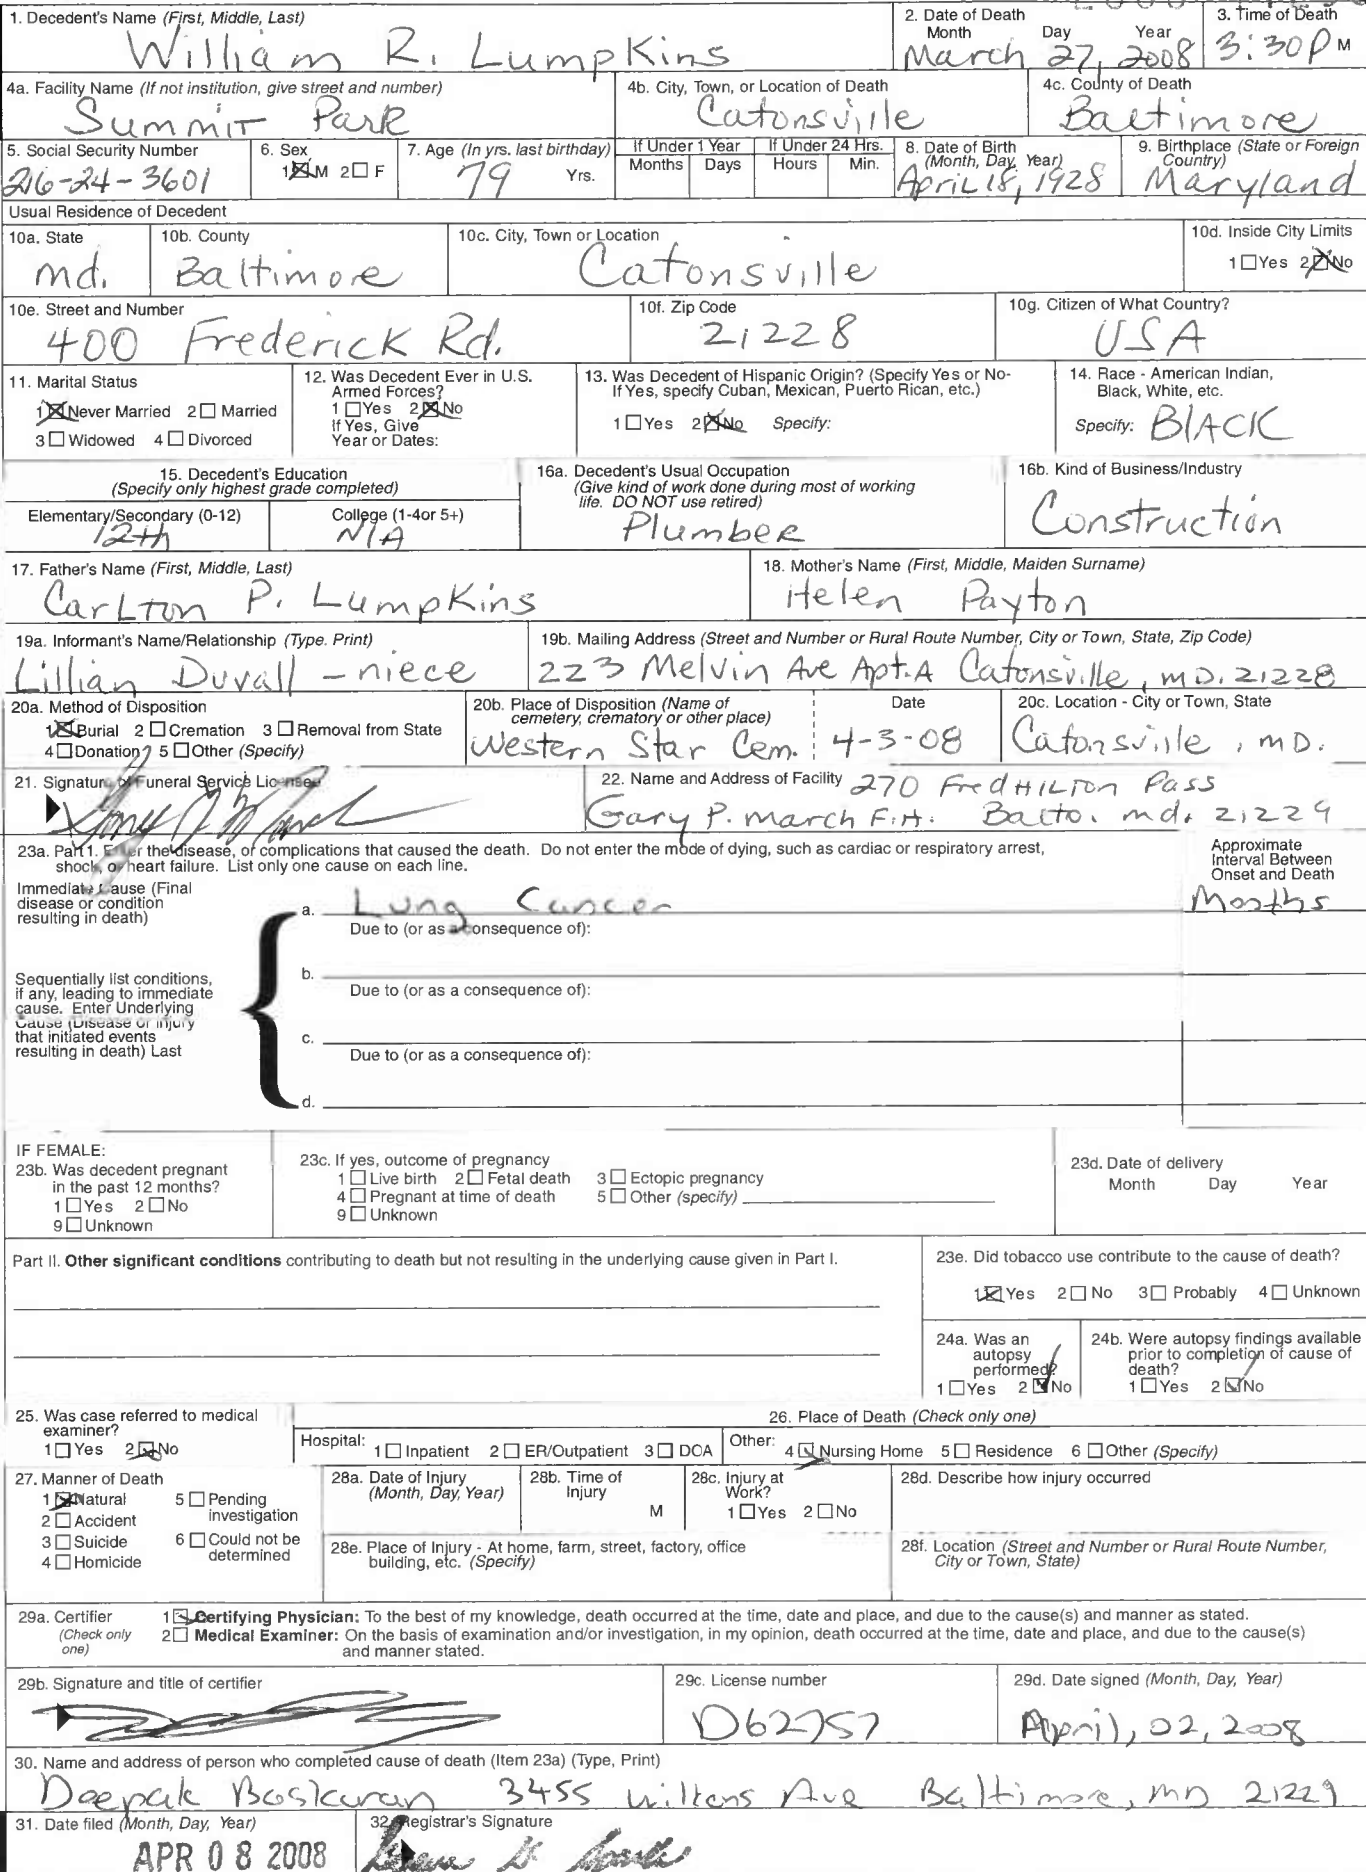 1. Decedent's Name (First, Middle, Last)
William R. Lumpkins
2. Date of Death
Month Day Year
March 27, 2008
3. Time of Death
3:30P M
4a. Facility Name (If not institution, give street and number)
Summit Park
4b. City, Town, or Location of Death
Catonsville
4c. County of Death
Baltimore
5. Social Security Number
216-24-3601
6. Sex
1☒M 2☐F
7. Age (In yrs. last birthday)
79 Yrs.
If Under 1 Year
Months Days
If Under 24 Hrs.
Hours Min.
8. Date of Birth
(Month, Day, Year)
April 18, 1928
9. Birthplace (State or Foreign
Country)
Maryland
Usual Residence of Decedent
10a. State
md.
10b. County
Baltimore
10c. City, Town or Location
Catonsville
10d. Inside City Limits
1☐Yes 2☒No
10e. Street and Number
400 Frederick Rd.
10f. Zip Code
21228
10g. Citizen of What Country?
USA
11. Marital Status
1☒Never Married 2☐Married
3☐Widowed 4☐Divorced
12. Was Decedent Ever in U.S.
Armed Forces?
1☐Yes 2☒No
If Yes, Give
Year or Dates:
13. Was Decedent of Hispanic Origin? (Specify Yes or No-
If Yes, specify Cuban, Mexican, Puerto Rican, etc.)
1☐Yes 2☒No Specify:
14. Race - American Indian,
Black, White, etc.
Specify: BlACK
15. Decedent's Education
(Specify only highest grade completed)
Elementary/Secondary (0-12)
12th
College (1-4or 5+)
N/A
16a. Decedent's Usual Occupation
(Give kind of work done during most of working
life. DO NOT use retired)
Plumber
16b. Kind of Business/Industry
Construction
17. Father's Name (First, Middle, Last)
Carlton P. Lumpkins
18. Mother's Name (First, Middle, Maiden Surname)
Helen Payton
19a. Informant's Name/Relationship (Type. Print)
Lillian Duvall - niece
19b. Mailing Address (Street and Number or Rural Route Number, City or Town, State, Zip Code)
223 Melvin Ave Apt.A Catonsville, MD. 21228
20a. Method of Disposition
1☒Burial 2☐Cremation 3☐Removal from State
4☐Donation 5☐Other (Specify)
20b. Place of Disposition (Name of
cemetery, crematory or other place)
Western Star Cem.
Date
4-3-08
20c. Location - City or Town, State
Catonsville, MD.
21. Signature of Funeral Service Licensee
22. Name and Address of Facility 270 Fred Hilton Pass
Gary P. March F.H. Balto. md. 21229
23a. Part 1. Enter the disease, or complications that caused the death. Do not enter the mode of dying, such as cardiac or respiratory arrest,
shock, or heart failure. List only one cause on each line.
Approximate
Interval Between
Onset and Death
Immediate Cause (Final
disease or condition
resulting in death)
a. Lung Cancer
Months
Due to (or as a consequence of):
Sequentially list conditions,
if any, leading to immediate
cause. Enter Underlying
Cause (Disease or injury
that initiated events
resulting in death) Last
b.
Due to (or as a consequence of):
c.
Due to (or as a consequence of):
d.
IF FEMALE:
23b. Was decedent pregnant
in the past 12 months?
1☐Yes 2☐No
9☐Unknown
23c. If yes, outcome of pregnancy
1☐Live birth 2☐Fetal death 3☐Ectopic pregnancy
4☐Pregnant at time of death 5☐Other (specify)
9☐Unknown
23d. Date of delivery
Month Day Year
Part II. Other significant conditions contributing to death but not resulting in the underlying cause given in Part I.
23e. Did tobacco use contribute to the cause of death?
1☒Yes 2☐No 3☐Probably 4☐Unknown
24a. Was an
autopsy
performed?
1☐Yes 2☑No
24b. Were autopsy findings available
prior to completion of cause of
death?
1☐Yes 2☑No
25. Was case referred to medical
examiner?
1☐Yes 2☑No
26. Place of Death (Check only one)
Hospital: 1☐Inpatient 2☐ER/Outpatient 3☐DOA
Other: 4☑Nursing Home 5☐Residence 6☐Other (Specify)
27. Manner of Death
1☒Natural 5☐Pending
investigation
2☐Accident
3☐Suicide 6☐Could not be
determined
4☐Homicide
28a. Date of Injury
(Month, Day, Year)
28b. Time of
Injury
M
28c. Injury at
Work?
1☐Yes 2☐No
28d. Describe how injury occurred
28e. Place of Injury - At home, farm, street, factory, office
building, etc. (Specify)
28f. Location (Street and Number or Rural Route Number,
City or Town, State)
29a. Certifier
(Check only
one)
1☑Certifying Physician: To the best of my knowledge, death occurred at the time, date and place, and due to the cause(s) and manner as stated.
2☐Medical Examiner: On the basis of examination and/or investigation, in my opinion, death occurred at the time, date and place, and due to the cause(s)
and manner stated.
29b. Signature and title of certifier
29c. License number
D62757
29d. Date signed (Month, Day, Year)
April, 02, 2008
30. Name and address of person who completed cause of death (Item 23a) (Type, Print)
Deepak Baskaran 3455 Wilkens Ave Baltimore, MD 21229
31. Date filed (Month, Day, Year)
APR 08 2008
32. Registrar's Signature